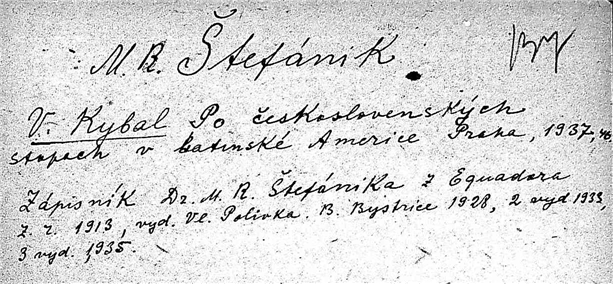 M. R. Štefánik
V. Kybal Po československých
stopach v Latinské Americe Praha, 1937,
Zápisník Dr. M. R. Štefánika z Equadora
z. r. 1913, vyd. Vl. Polivka. B. Bystrice 1928, 2 vyd 1933,
3 vyd. 1935.